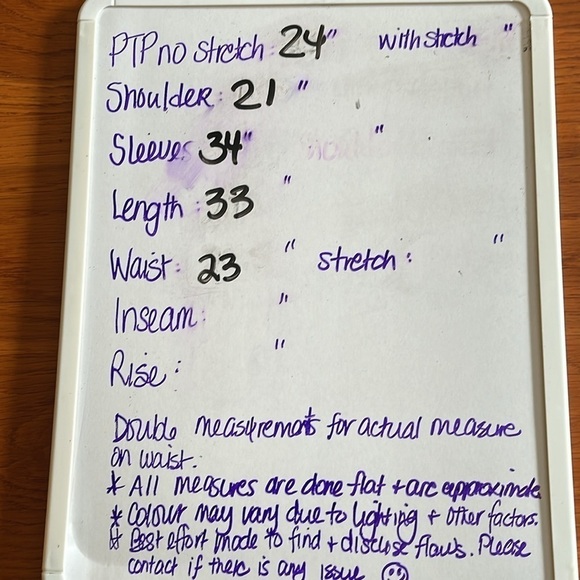 PTP no stretch: 24" with stretch "
Shoulder: 21 "
Sleeves 34" "
Length: 33 "
Waist: 23 " stretch: "
Inseam: "
Rise: "
Double measurements for actual measure
on waist.
* All measures are done flat + are approximate
* Colour may vary due to lighting + other factors.
* Best effort made to find + disclose flaws. Please
contact if there is any issue ☺